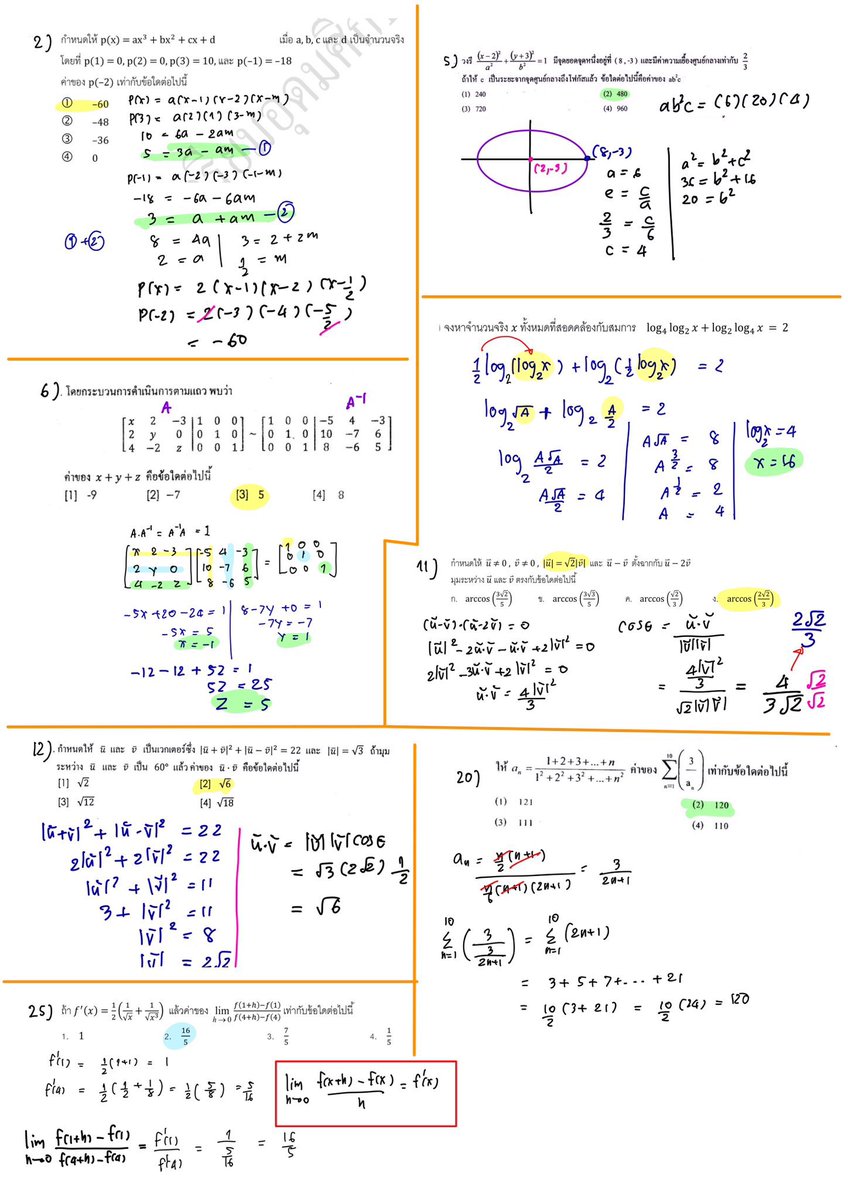 2) กำหนดให้ p(x) = ax³ + bx² + cx + d เมื่อ a, b, c และ d เป็นจำนวนจริง
โดยที่ p(1) = 0, p(2) = 0, p(3) = 10, และ p(−1) = −18
ค่าของ p(−2) เท่ากับข้อใดต่อไปนี้
① -60
② -48
③ -36
④ 0
P(x) = a(x-1)(x-2)(x-m)
P(3) = a(2)(1)(3-m)
10 = 6a - 2am
5 = 3a - am — ①
P(-1) = a(-2)(-3)(-1-m)
-18 = -6a - 6am
3 = a + am — ②
①+②
8 = 4a | 3 = 2 + 2m
2 = a | 1/2 = m
P(x) = 2(x-1)(x-2)(x-1/2)
P(-2) = 2(-3)(-4)(-5/2)
= -60
5) วงรี (x−2)²/a² + (y+3)²/b² = 1 มีจุดยอดจุดหนึ่งอยู่ที่ (8, -3) และมีค่าความเยื้องศูนย์กลางเท่ากับ 2/3
ถ้าให้ c เป็นระยะจากจุดศูนย์กลางถึงโฟกัสแล้ว ข้อใดต่อไปนี้คือค่าของ ab²c
(1) 240 (2) 480
(3) 720 (4) 960
ab²c = (6)(20)(4)
(8,-3)
(2,-3)
a = 6
e = c/a
2/3 = c/6
c = 4
a² = b² + c²
36 = b² + 16
20 = b²
จงหาจำนวนจริง x ทั้งหมดที่สอดคล้องกับสมการ log₄ log₂ x + log₂ log₄ x = 2
1/2 log₂(log₂x) + log₂(1/2 log₂x) = 2
log₂√A + log₂ A/2 = 2
log₂ A√A/2 = 2
A√A/2 = 4
A√A = 8
A^(3/2) = 8
A^(1/2) = 2
A = 4
log₂x = 4
x = 16
6). โดยกระบวนการดำเนินการตามแถว พบว่า
A A⁻¹
[x 2 −3 | 1 0 0] [1 0 0 | −5 4 −3]
[2 y 0 | 0 1 0] ~ [0 1 0 | 10 −7 6]
[4 −2 z | 0 0 1] [0 0 1 | 8 −6 5]
ค่าของ x + y + z คือข้อใดต่อไปนี้
[1] -9 [2] −7 [3] 5 [4] 8
A.A⁻¹ = A⁻¹A = 1
[x 2 -3] [-5 4 -3] [1 0 0]
[2 y 0] [10 -7 6] = [0 1 0]
[4 -2 z] [8 -6 5] [0 0 1]
-5x+20-24 = 1 | 8-7y+0 = 1
-5x = 5 | -7y = -7
x = -1 | y = 1
-12-12+5z = 1
5z = 25
z = 5
11) กำหนดให้ ū ≠ 0 , v̄ ≠ 0 , |ū| = √2|v̄| และ ū − v̄ ตั้งฉากกับ ū − 2v̄
มุมระหว่าง ū และ v̄ ตรงกับข้อใดต่อไปนี้
ก. arccos(3√2/5) ข. arccos(3√3/5) ค. arccos(√2/3) ง. arccos(2√2/3)
(ū-v̄)·(ū-2v̄) = 0
|ū|² - 2ū·v̄ - ū·v̄ + 2|v̄|² = 0
2|v̄|² - 3ū·v̄ + 2|v̄|² = 0
ū·v̄ = 4|v̄|²/3
cosθ = ū·v̄/|ū||v̄|
= (4|v̄|²/3)/(√2|v̄||v̄|) = 4/(3√2) √2/√2
2√2/3
12). กำหนดให้ ū และ v̄ เป็นเวกเตอร์ซึ่ง |ū + v̄|² + |ū − v̄|² = 22 และ |ū| = √3 ถ้ามุม
ระหว่าง ū และ v̄ เป็น 60° แล้วค่าของ ū · v̄ คือข้อใดต่อไปนี้
[1] √2 [2] √6
[3] √12 [4] √18
|ū+v̄|² + |ū-v̄|² = 22
2|ū|² + 2|v̄|² = 22
|ū|² + |v̄|² = 11
3 + |v̄|² = 11
|v̄|² = 8
|v̄| = 2√2
ū·v̄ = |ū||v̄|cosθ
= √3(2√2)1/2
= √6
20) ให้ aₙ = (1+2+3+...+n)/(1²+2²+3²+...+n²) ค่าของ ∑ₙ₌₁¹⁰ (3/aₙ) เท่ากับข้อใดต่อไปนี้
(1) 121 (2) 120
(3) 111 (4) 110
aₙ = (n/2(n+1))/(n/6(n+1)(2n+1)) = 3/(2n+1)
∑ₙ₌₁¹⁰ (3/(3/(2n+1))) = ∑ₙ₌₁¹⁰ (2n+1)
= 3+5+7+...+21
= 10/2(3+21) = 10/2(24) = 120
25) ถ้า f′(x) = 1/2(1/√x + 1/√x³) แล้วค่าของ lim h→0 (f(1+h)−f(1))/(f(4+h)−f(4)) เท่ากับข้อใดต่อไปนี้
1. 1 2. 16/5 3. 7/5 4. 1/5
f′(1) = 1/2(1+1) = 1
f′(4) = 1/2(1/2+1/8) = 1/2(5/8) = 5/16
lim h→0 (f(x+h)-f(x))/h = f′(x)
lim h→0 (f(1+h)-f(1))/(f(4+h)-f(4)) = f′(1)/f′(4) = 1/(5/16) = 16/5